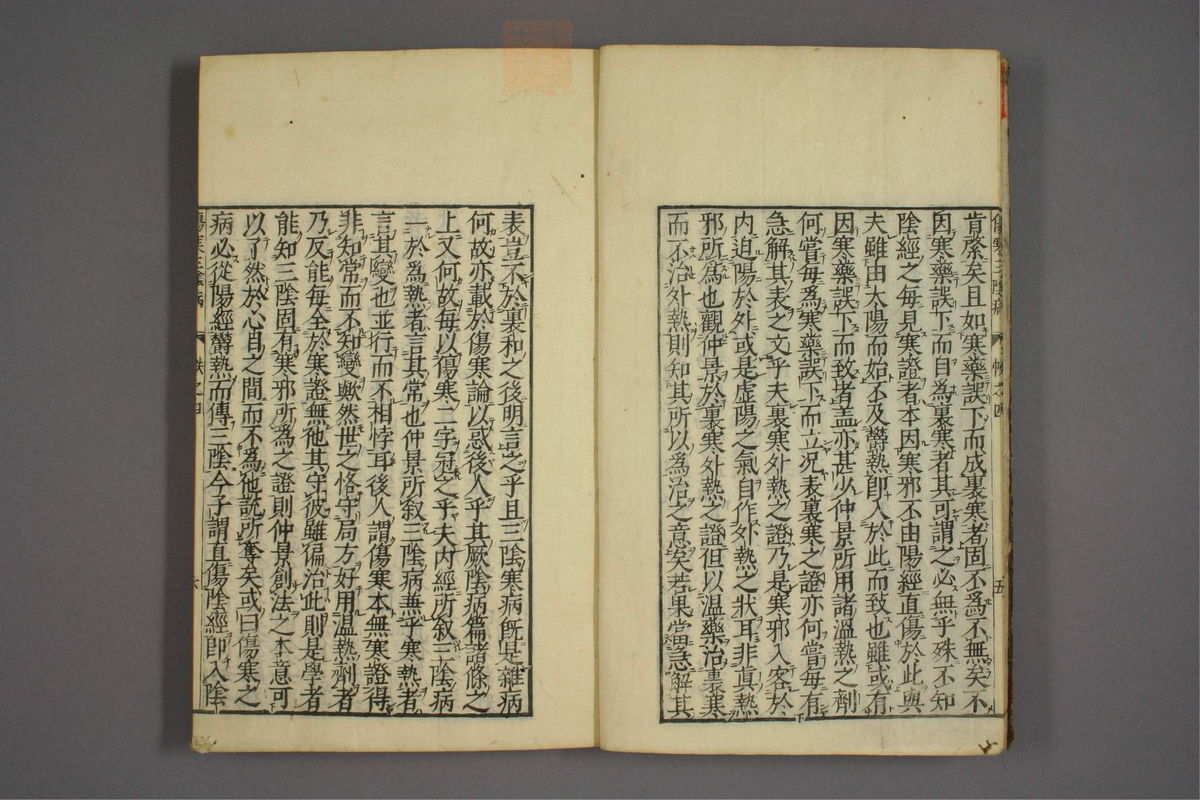 肯綮矣且如寒藥誤下而成裏寒者固不爲不無矣不
因寒藥誤下而自爲裏寒者其可謂之必無乎殊不知
陰經之每見寒證者本因寒邪不由陽經直傷於此與
夫雖由太陽而始不及鬱熱即入於此而致也雖或有
因寒藥誤下而致者盖亦甚少仲景所用諸溫熱之劑
何嘗每爲寒藥誤下而立况表裏寒之證亦何嘗每有
急解其表之文乎夫裏寒外熱之證乃是寒邪入客於
内迫陽於外或是虛陽之氣自作外熱之狀耳非眞熱
邪所爲也觀仲景於裏寒外熱之證但以温藥治裏寒
而不治外熱則知其所以爲治之意矣若果當急解其
五
表豈不於裏和之後明言之乎且三陰寒病既是雜病
何故亦載於傷寒論以惑後人乎其厥陰病篇諸條之
上又何故每以傷寒二字冠之乎夫内經所叙三陰病
一於爲熱者言其常也仲景所叙三陰病兼乎寒熱者
言其變也並行而不相悖耳後人謂傷寒本無寒證得
非知常而不知變歟然世之恪守局方好用温熱劑者
乃反能每全於寒證無他其守彼雖偏治此則是學者
能知三陰固有寒邪所爲之證則仲景創法之本意可
以了然於心目之間而不爲他説所奪矣或曰傷寒之
病必從陽經鬱熱而傳三陰今子謂直傷陰經即入陰
六